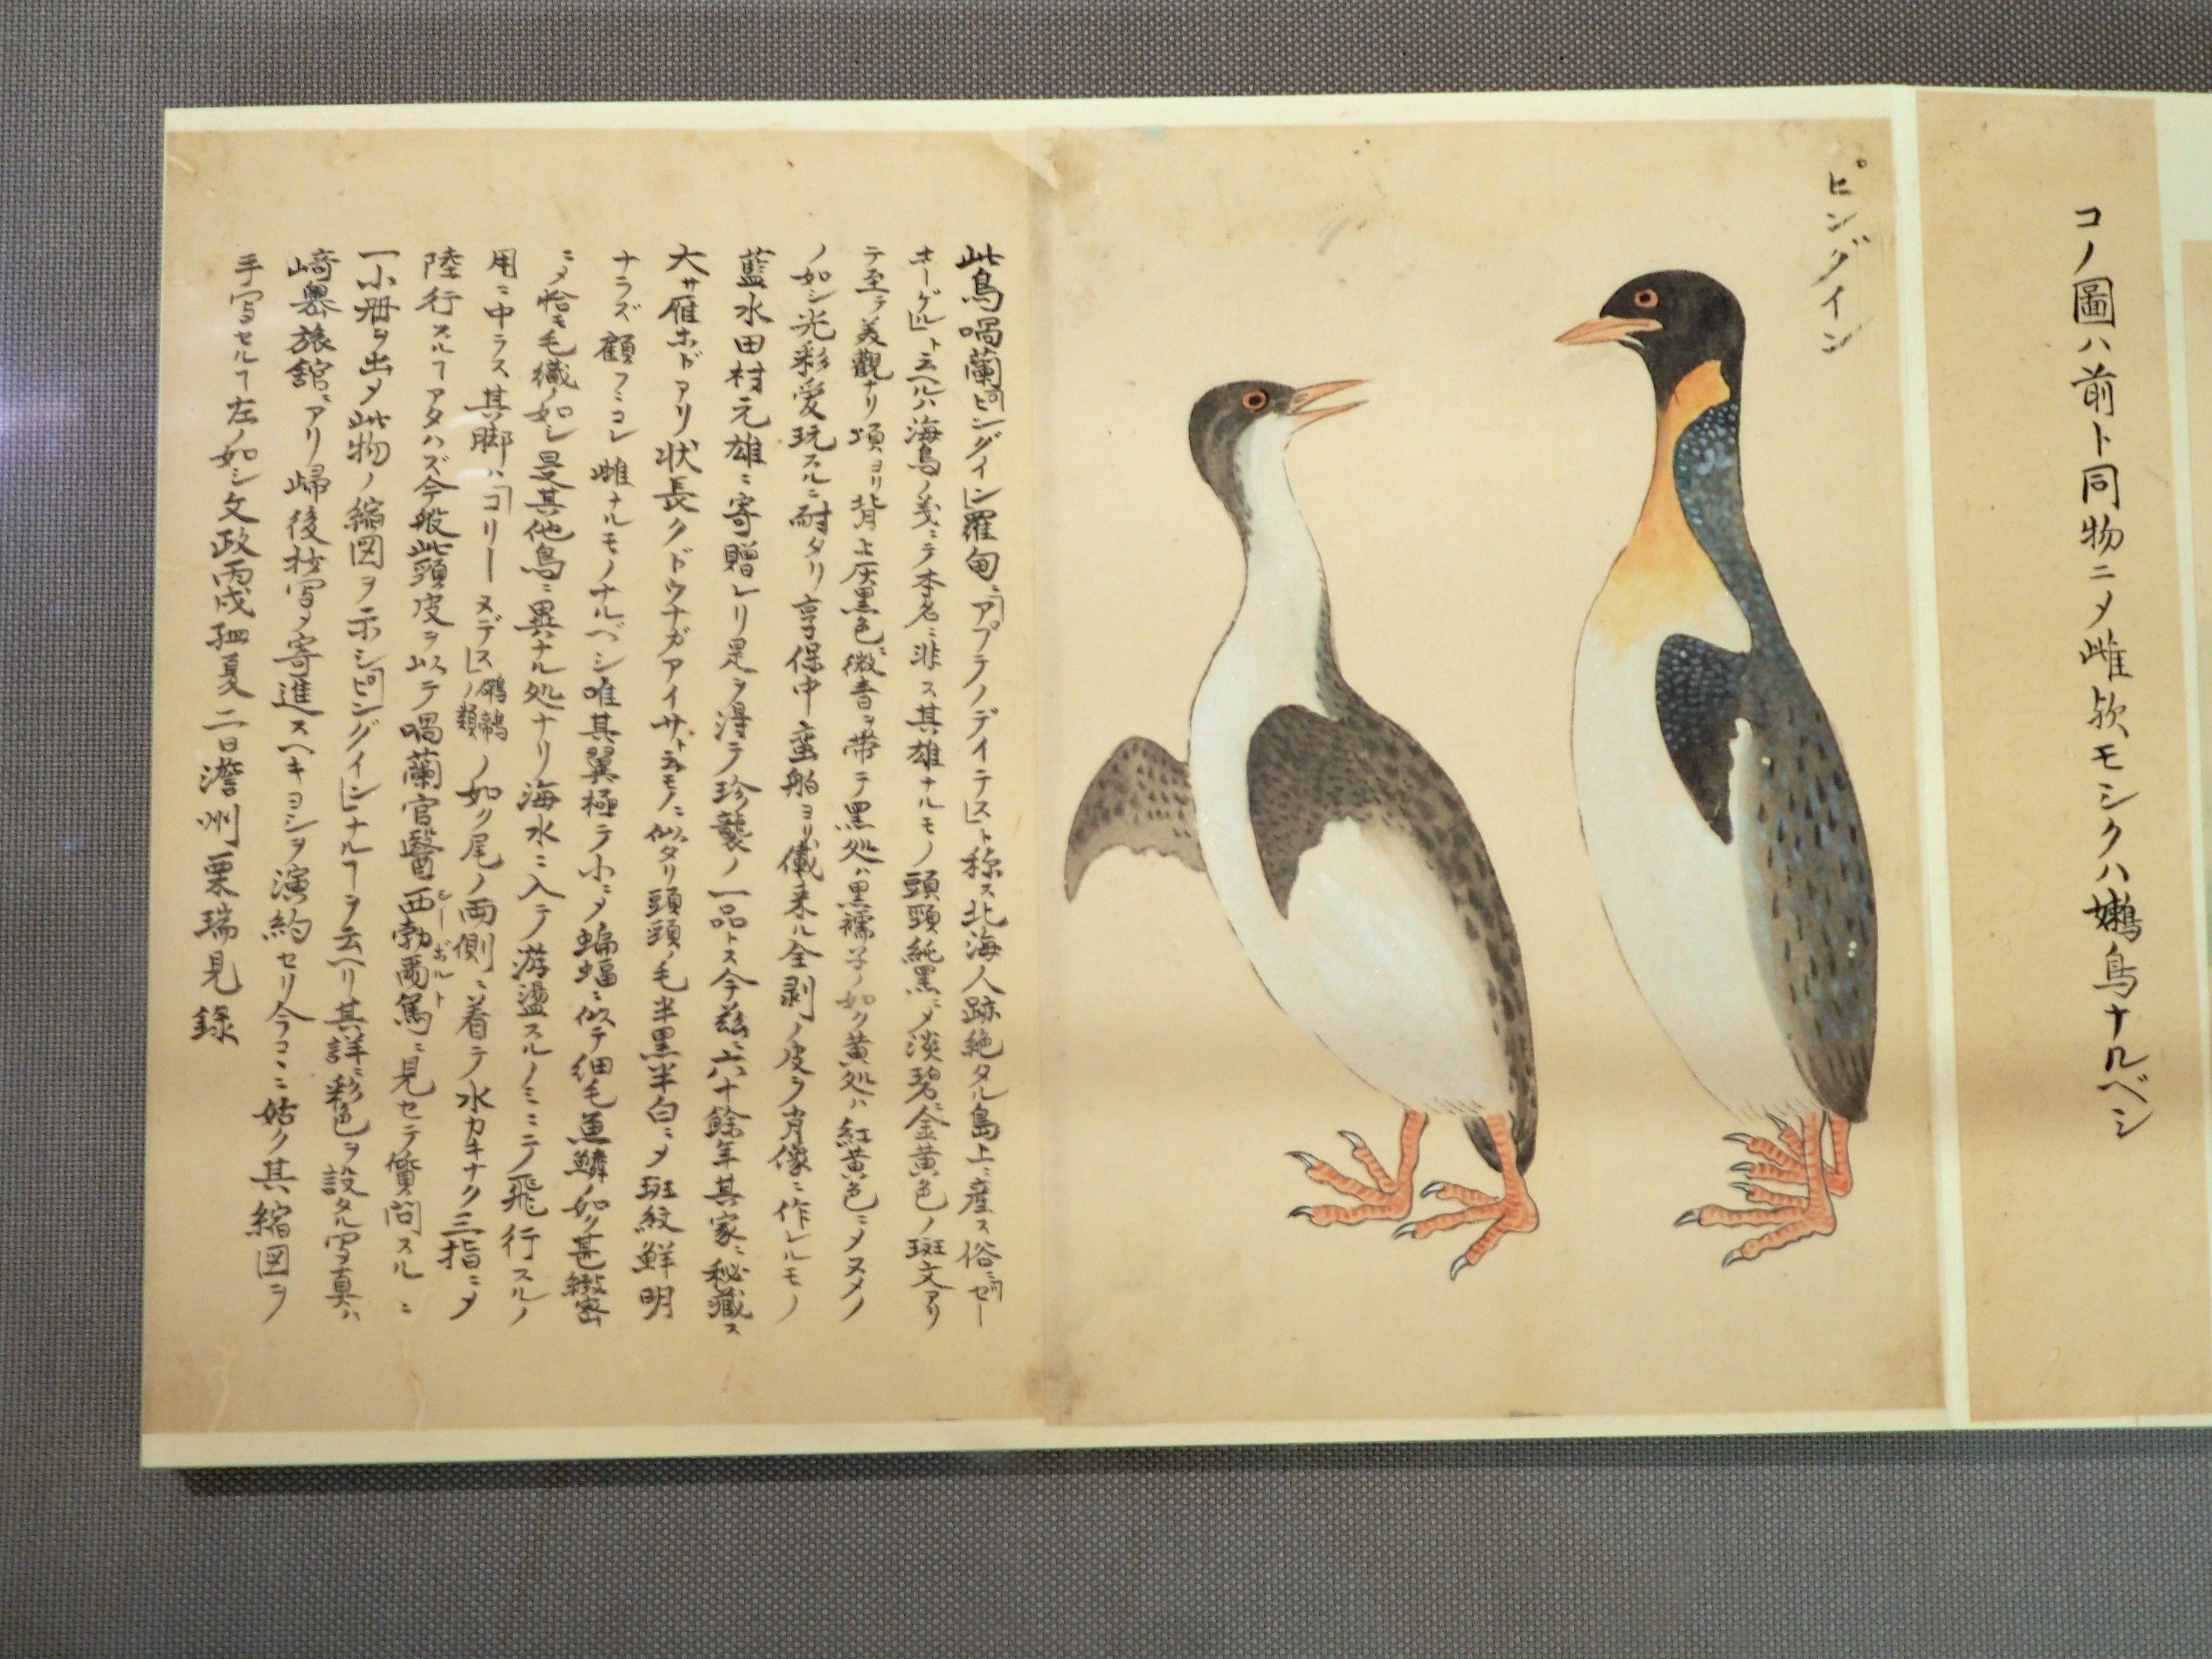 コノ圖ハ前ト同物ニメ雌欤モシクハ嫩鳥ナルベシ
ピングイン
此鳥喎蘭「ピングイン」羅甸ニ「アプラノデイテス」ト称ス北海人跡絶タル島上ニ産ス俗ニ「ゼー
ホーゲル」ト云ヘルハ海鳥ノ義ニテ本名ニ非ス其雄ナルモノ頭頸純黒ニメ淡碧ニ金黄色ノ斑文アリ
テ至テ美觀ナリ項ヨリ背上灰黒色ニ微青ヲ帯テ黒処ハ黒襦子ノ如ク黄処ハ紅黄色ニメヌメノ
ノ如シ光彩愛玩スルニ耐タリ享保中蛮舶ヨリ儎来ル全剥ノ皮ヲ肖像ニ作レルモノ
藍水田村元雄ニ寄贈レリ是ヲ得テ珍襲ノ一品トス今玆ニ六十餘年其家ニ秘藏ス
大サ雁ホドアリ状長クドウナガアイサト云モノニ似タリ頭頸ノ毛半黒半白ニメ斑紋鮮明
ナラズ顧フニコレ雌ナルモノナルベシ唯其翼極テ小ニメ蝙蝠ニ似テ細毛魚鱗ノ如ク甚緻密
ニメ恰モ毛織ノ如シ是其他鳥ニ異ナル処ナリ海水ニ入テ游盪スルノミニテ飛行スルノ
用ニ中ラス其脚ハ「コリーヌデス」ノ類ノ如ク尾ノ両側ニ着テ水カキナク三指ニメ
陸行スルヿアタハズ今般此頭皮ヲ以テ喎蘭官醫西勃爾篤シーボルトニ見セテ質問スルニ
一小冊ヲ出メ此物ノ縮図ヲ示シ「ピングイン」ナルヿヲ云ヘリ其詳ニ彩色ヲ設タル写真ハ
﨑嶴旅舘ニアリ帰後抄写メ寄進スヘキヨシヲ演約セリ今コニ姑ク其縮図ヲ
手写セルヿ左ノ如シ文政丙戌孟夏二日澹洲栗瑞見錄